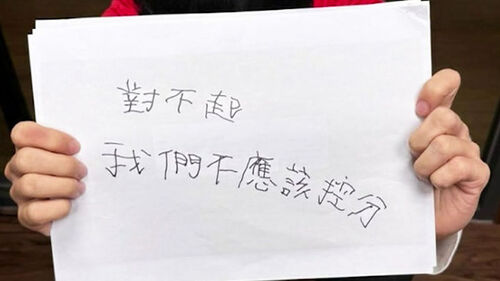 對不起
我們不應該控分